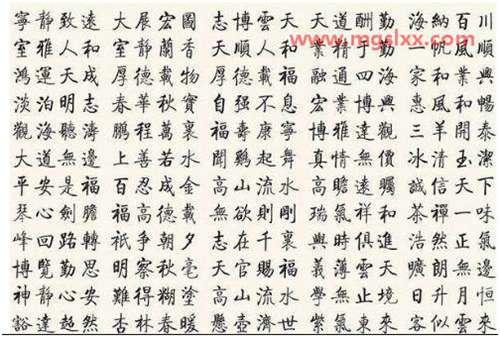 寧靜致遠 大展宏圖 志博雲天 天道酬勤 海納百川
室雅人和 室靜蘭香 天順人和 業精于勤 一帆風順
鴻運天成 厚德載物 厚德載福 融通四海 家和業興
淡泊明志 春華秋實 自强不息 宏業博興 惠風和暢
觀海聽濤 鵬程萬裏 福壽康寧 博雅達觀 三羊開泰
大道無邊 上善若水 聞鷄起舞 真情無價 冰清玉潔
平安是福 百忍成金 高山流水 高瞻遠矚 誠信天下
琴心劍膽 福高德載 無欲則剛 瑞氣祥和 茶禪一味
峰回路轉 祇爭朝夕 志在千裏 與時俱進 浩然正氣
博覽勤思 明察秋毫 天官賜福 義薄雲天 曠朗無邊
神靜心安 難得糊塗 高山流水 學無止境 日升月恒
豁達超然 杏林春暖 懸壺濟世 紫氣東來 客似雲來
www.mgslxx.com